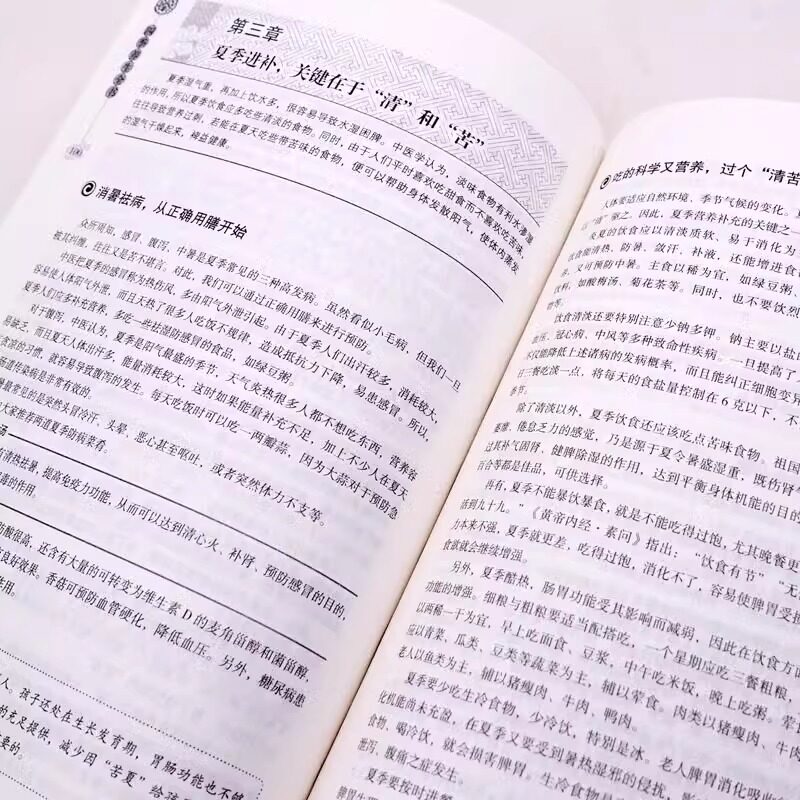 四季养生全书
第三章
夏季进补，关键在于“清”和“苦”
夏季湿气重，再加上饮水多，很容易导致水湿困脾。中医学认为，淡味食物有利水渗湿
的作用，所以夏季饮食应多吃些清淡的食物。同时，由于人们平时喜欢吃甜食而不喜欢吃苦味，
往往导致营养过剩，若能在夏天吃些带苦味的食物，便可以帮助身体发散阳气，使体内蒸发
的湿气干燥起来，裨益健康。
消暑祛病，从正确用膳开始
众所周知，感冒、腹泻、中暑是夏季常见的三种高发病。虽然看似小毛病，但我们一旦
被其纠缠，往往又是苦不堪言。对此，我们可以通过正确用膳来进行预防。
中医把夏季的感冒称为热伤风，多由阳气外泄引起。由于夏季人们出汗较多，消耗较大，
容易使人体阳气外泄，而且天热了很多人吃饭不规律，造成抵抗力下降，易患感冒。所以，
夏季人们应多补充营养，多吃一些祛湿防感冒的食品，如绿豆粥。
对于腹泻，中医认为，夏季是阳气最盛的季节，天气炎热很多人都不想吃东西，营养容
易缺乏，而且夏天人体出汗多，能量消耗较大，这时如果能量补充不足，加上不少人在夏天
食凉的习惯，就容易导致腹泻的发生。每天吃饭时可以吃一两瓣蒜，因为大蒜对于预防急
肠道传染病是非常有效的。
最常见的是突然头冒冷汗、头晕、恶心甚至呕吐，或者突然体力不支等。
大家推荐两道夏季防病菜肴。
汤
可清热祛暑，提高免疫力功能，从而可以达到清心火、补肾、预防感冒的目的，
毒的作用。
酸很高，还含有大量的可转变为维生素 D 的麦角甾醇和菌甾醇，
良好效果。香菇可预防血管硬化，降低血压。另外，糖尿病患
作用。
人，孩子还处在生长发育期，胃肠功能也不够
的充足提供，减少因“苦夏”给孩
要的。
吃的科学又营养，过个“清苦
人体要适应自然环境、季节气候的变化。夏
以“清”驱之，因此，夏季营养补充的关键之一
炎夏的饮食应以清淡质软、易于消化为
饮食能清热、防暑、敛汗、补液，还能增进食
，又可预防中暑。主食以稀为宜，如绿豆粥、
饮料，如酸梅汤、菊花茶等。同时，也不要饮烈
等。
饮食清淡还要特别注意少钠多钾。钠主要以盐
压、冠心病、中风等多种致命性疾病，一旦提高了
不仅能降低上述诸病的发病概率，而且能纠正细胞变异
日三餐吃淡一点，将每天的食盐量控制在 6 克以下，不
除了清淡以外，夏季饮食还应该吃点苦味食物。祖国
萎靡、倦怠乏力的感觉，乃是源于夏令暑盛湿重，既伤肾气
过其补气固肾、健脾除湿的作用，达到平衡身体机能的目的
百合等都是佳品，可供选择。
再有，夏季不能暴饮暴食，就是不能吃得过饱，尤其晚餐更
活到九十九。”《黄帝内经·素问》指出：“饮食有节”“无
力本来不强，夏季就更差，吃得过饱，消化不了，容易使脾胃受损
食欲就会继续增强。
另外，夏季酷热，肠胃功能受其影响而减弱，因此在饮食方
功能的增强。细粮与粗粮要适当配搭吃，一个星期应吃三餐粗粮，
以两稀一干为宜，早上吃面食、豆浆，中午吃米饭，晚上吃粥。荤
应以青菜、瓜类、豆类等蔬菜为主，辅以荤食。肉类以猪瘦肉、牛
老人以鱼类为主，辅以猪瘦肉、牛肉、鸭肉。
夏季要少吃生冷食物，少冷饮，特别是冰。老人脾胃消化吸收
化机能尚未充盈，在夏季又要受到暑热湿邪的侵扰，影
食物、喝冷饮，就会损害脾胃。生冷食物是
泄泻、腹痛之症发生。
夏季要按时进餐